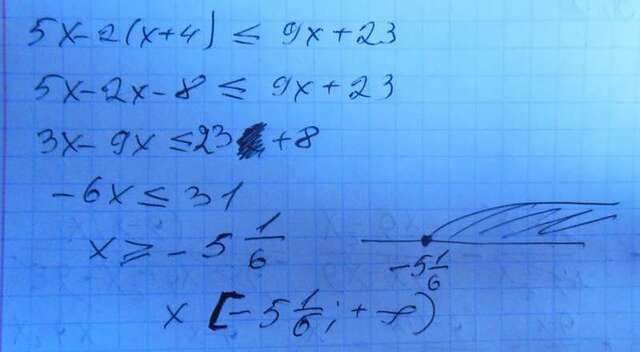 5x-2(x+4) ≤ 9x+23
5x-2x-8 ≤ 9x+23
3x-9x ≤ 23 +8
-6x ≤ 31
x ≥ -5 1/6
-5 1/6
x [-5 1/6; +∞)